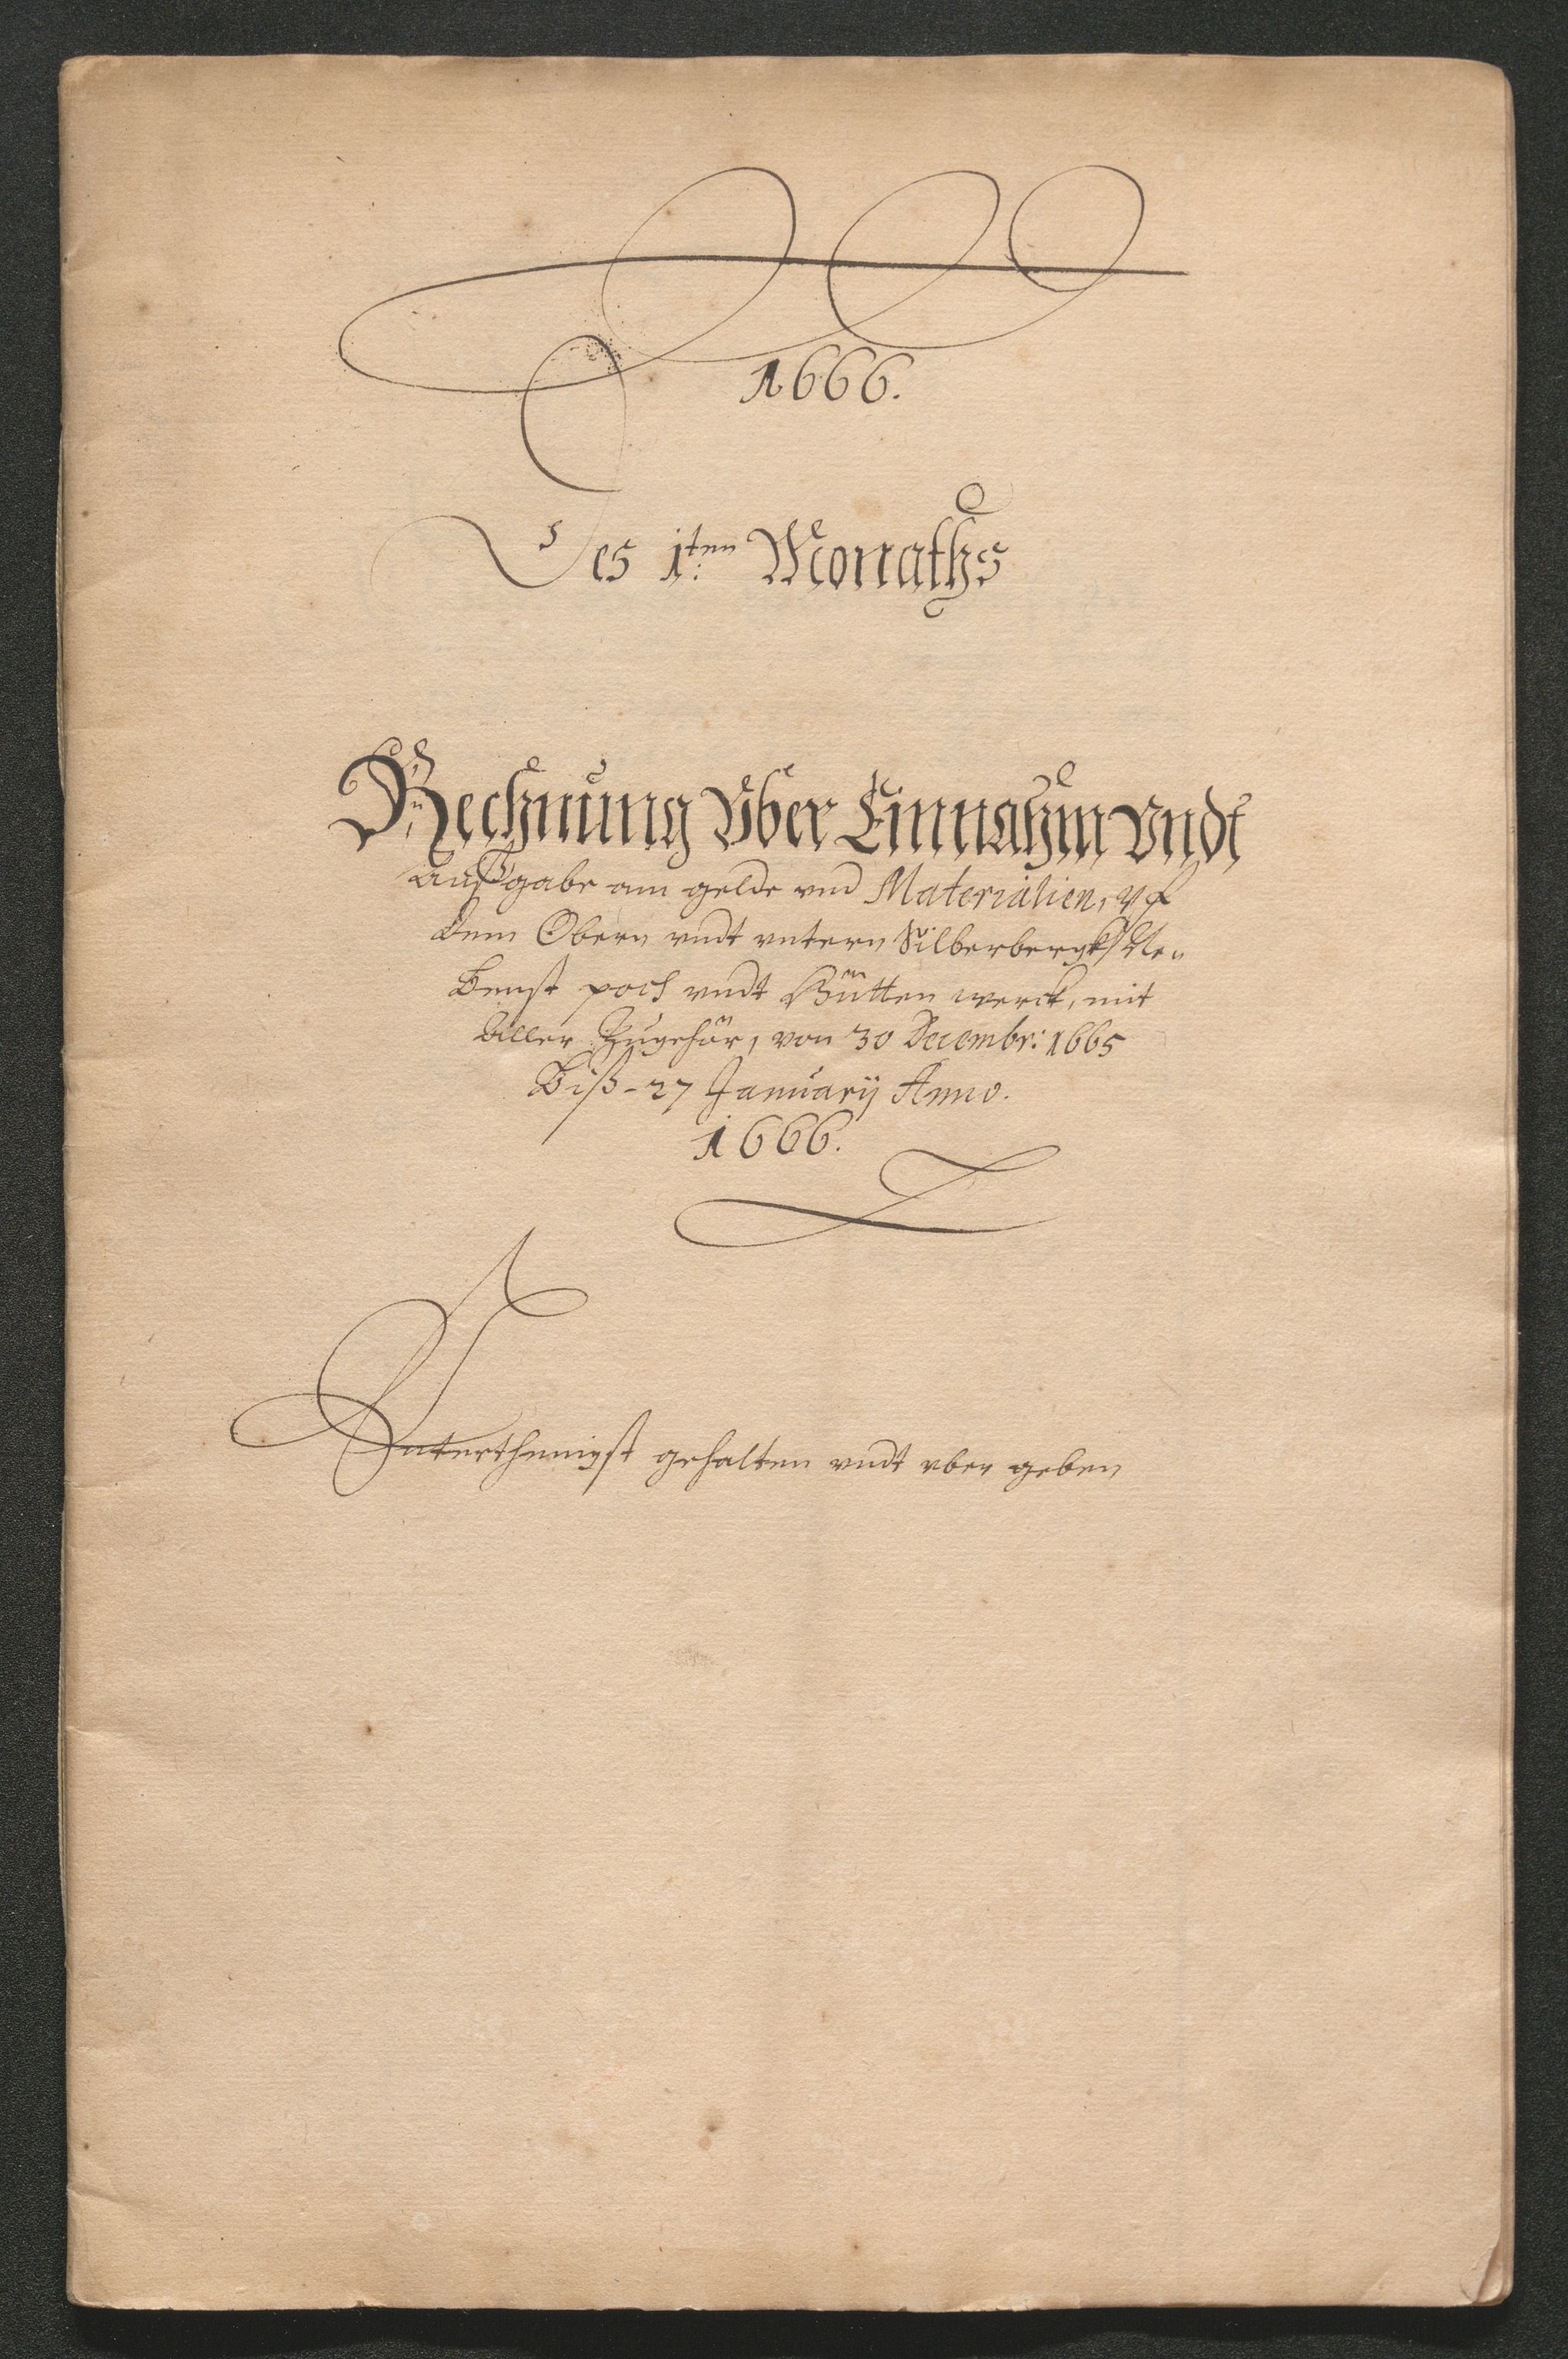 1666.
Des 1ten Monaths
Rechnung Vber Einnahm Vndt
Außgabe an gelde vnd Materialien, vf
dem Obern vndt vntern Silberbergk
poch vndt Hütten werck, mit
aller Zugehör, von 30 Decembr: 1665
Biß - 27 January Anno.
1666.
Vnterthenigst gehalten vndt vber geben